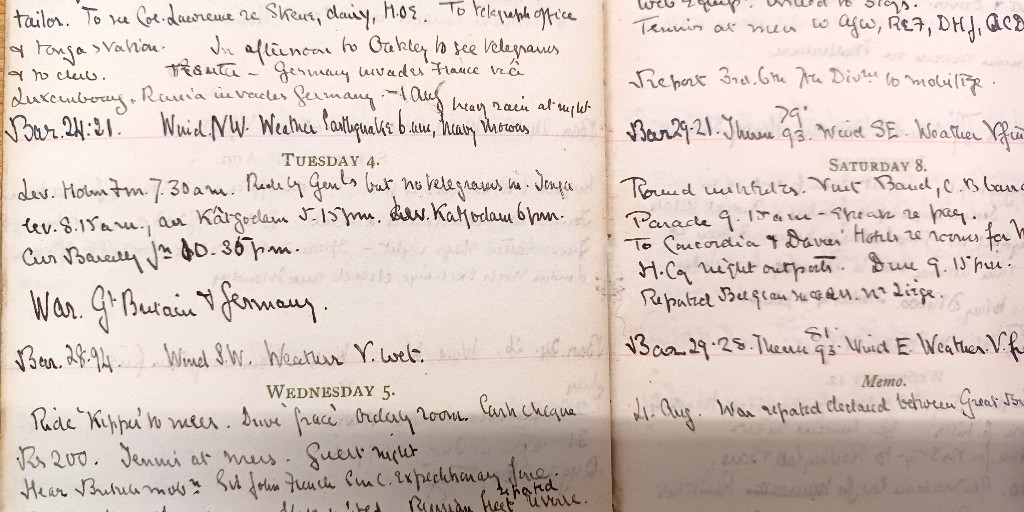 tailor. To see Col. Lawrence re Skene, dairy, H.O.E. To telegraph office
& tonga station. In afternoon to Oakley to see telegrams
& to club. Reuter – Germany invades France viâ
Luxembourg. Russia invades Germany. – 1 Aug heavy rain at night
Bar. 24.21. Wind. NW. Weather Earthquake 6 a.m, heavy showers
TUESDAY 4.
Lev. Holm Fm 7.30 am. Ride by but no telegrams in. Tonga
lev. 8.15 am., arr Kâtgodam 5.15 pm. Lev. Katgodam 6 pm.
arr Bareilly Jn 10.35 pm.
War. Gt Britain & Germany.
Bar. 28.94. Wind S.W. Weather V. wet.
WEDNESDAY 5.
Ride 'Kipper' to mess. Drive 'Grace' orderly room. Cash cheque
Rs 200. Tennis at mess. Guest night
Hear British mobn Sir John French C in C. Expeditionary force.
reported
Russian fleet
Tennis at mess w AGW, REF, DHJ,
Report 3rd. 6th 7th Divns to mobilize.
79
Bar 29.21. Therm 93. Wind SE. Weather V fin
SATURDAY 8.
Round institutes. Visit Band, C.B.
Parade 9.15 am – speak re pay.
To Concordia & Davis' Hotels re rooms for
H. Cq night outposts. Dine 9.15 pm.
Reported Belgian success nr Liège.
81
Bar 29.28. Therm 93 Wind E. Weather. V. f
Memo.
4. Aug. War reported declared between Great Br